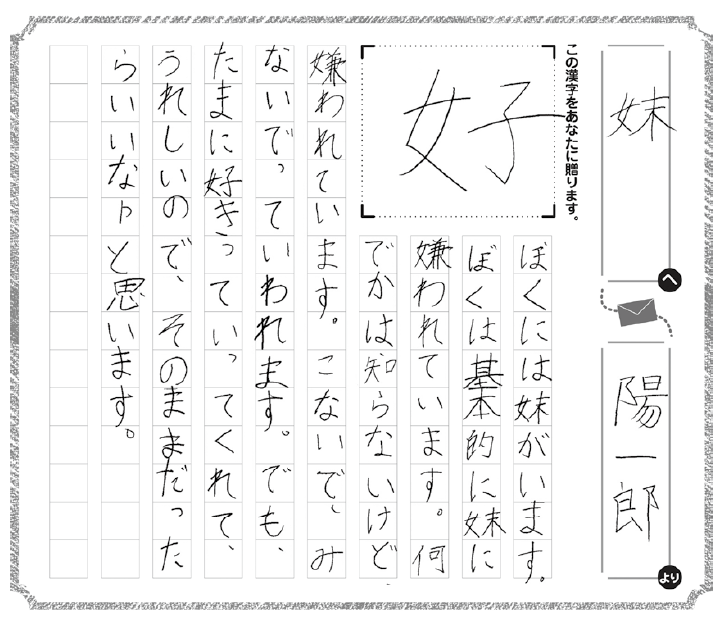 妹
へ
陽一郎
より
この漢字をあなたに贈ります。
好
ぼくには妹がいます。
ぼくは基本的に妹に
嫌われています。何
でかは知らないけど、
嫌われています。こないで、み
ないでっていわれます。でも、
たまに好きっていってくれて、
うれしいので、そのままだった
らいいなァと思います。